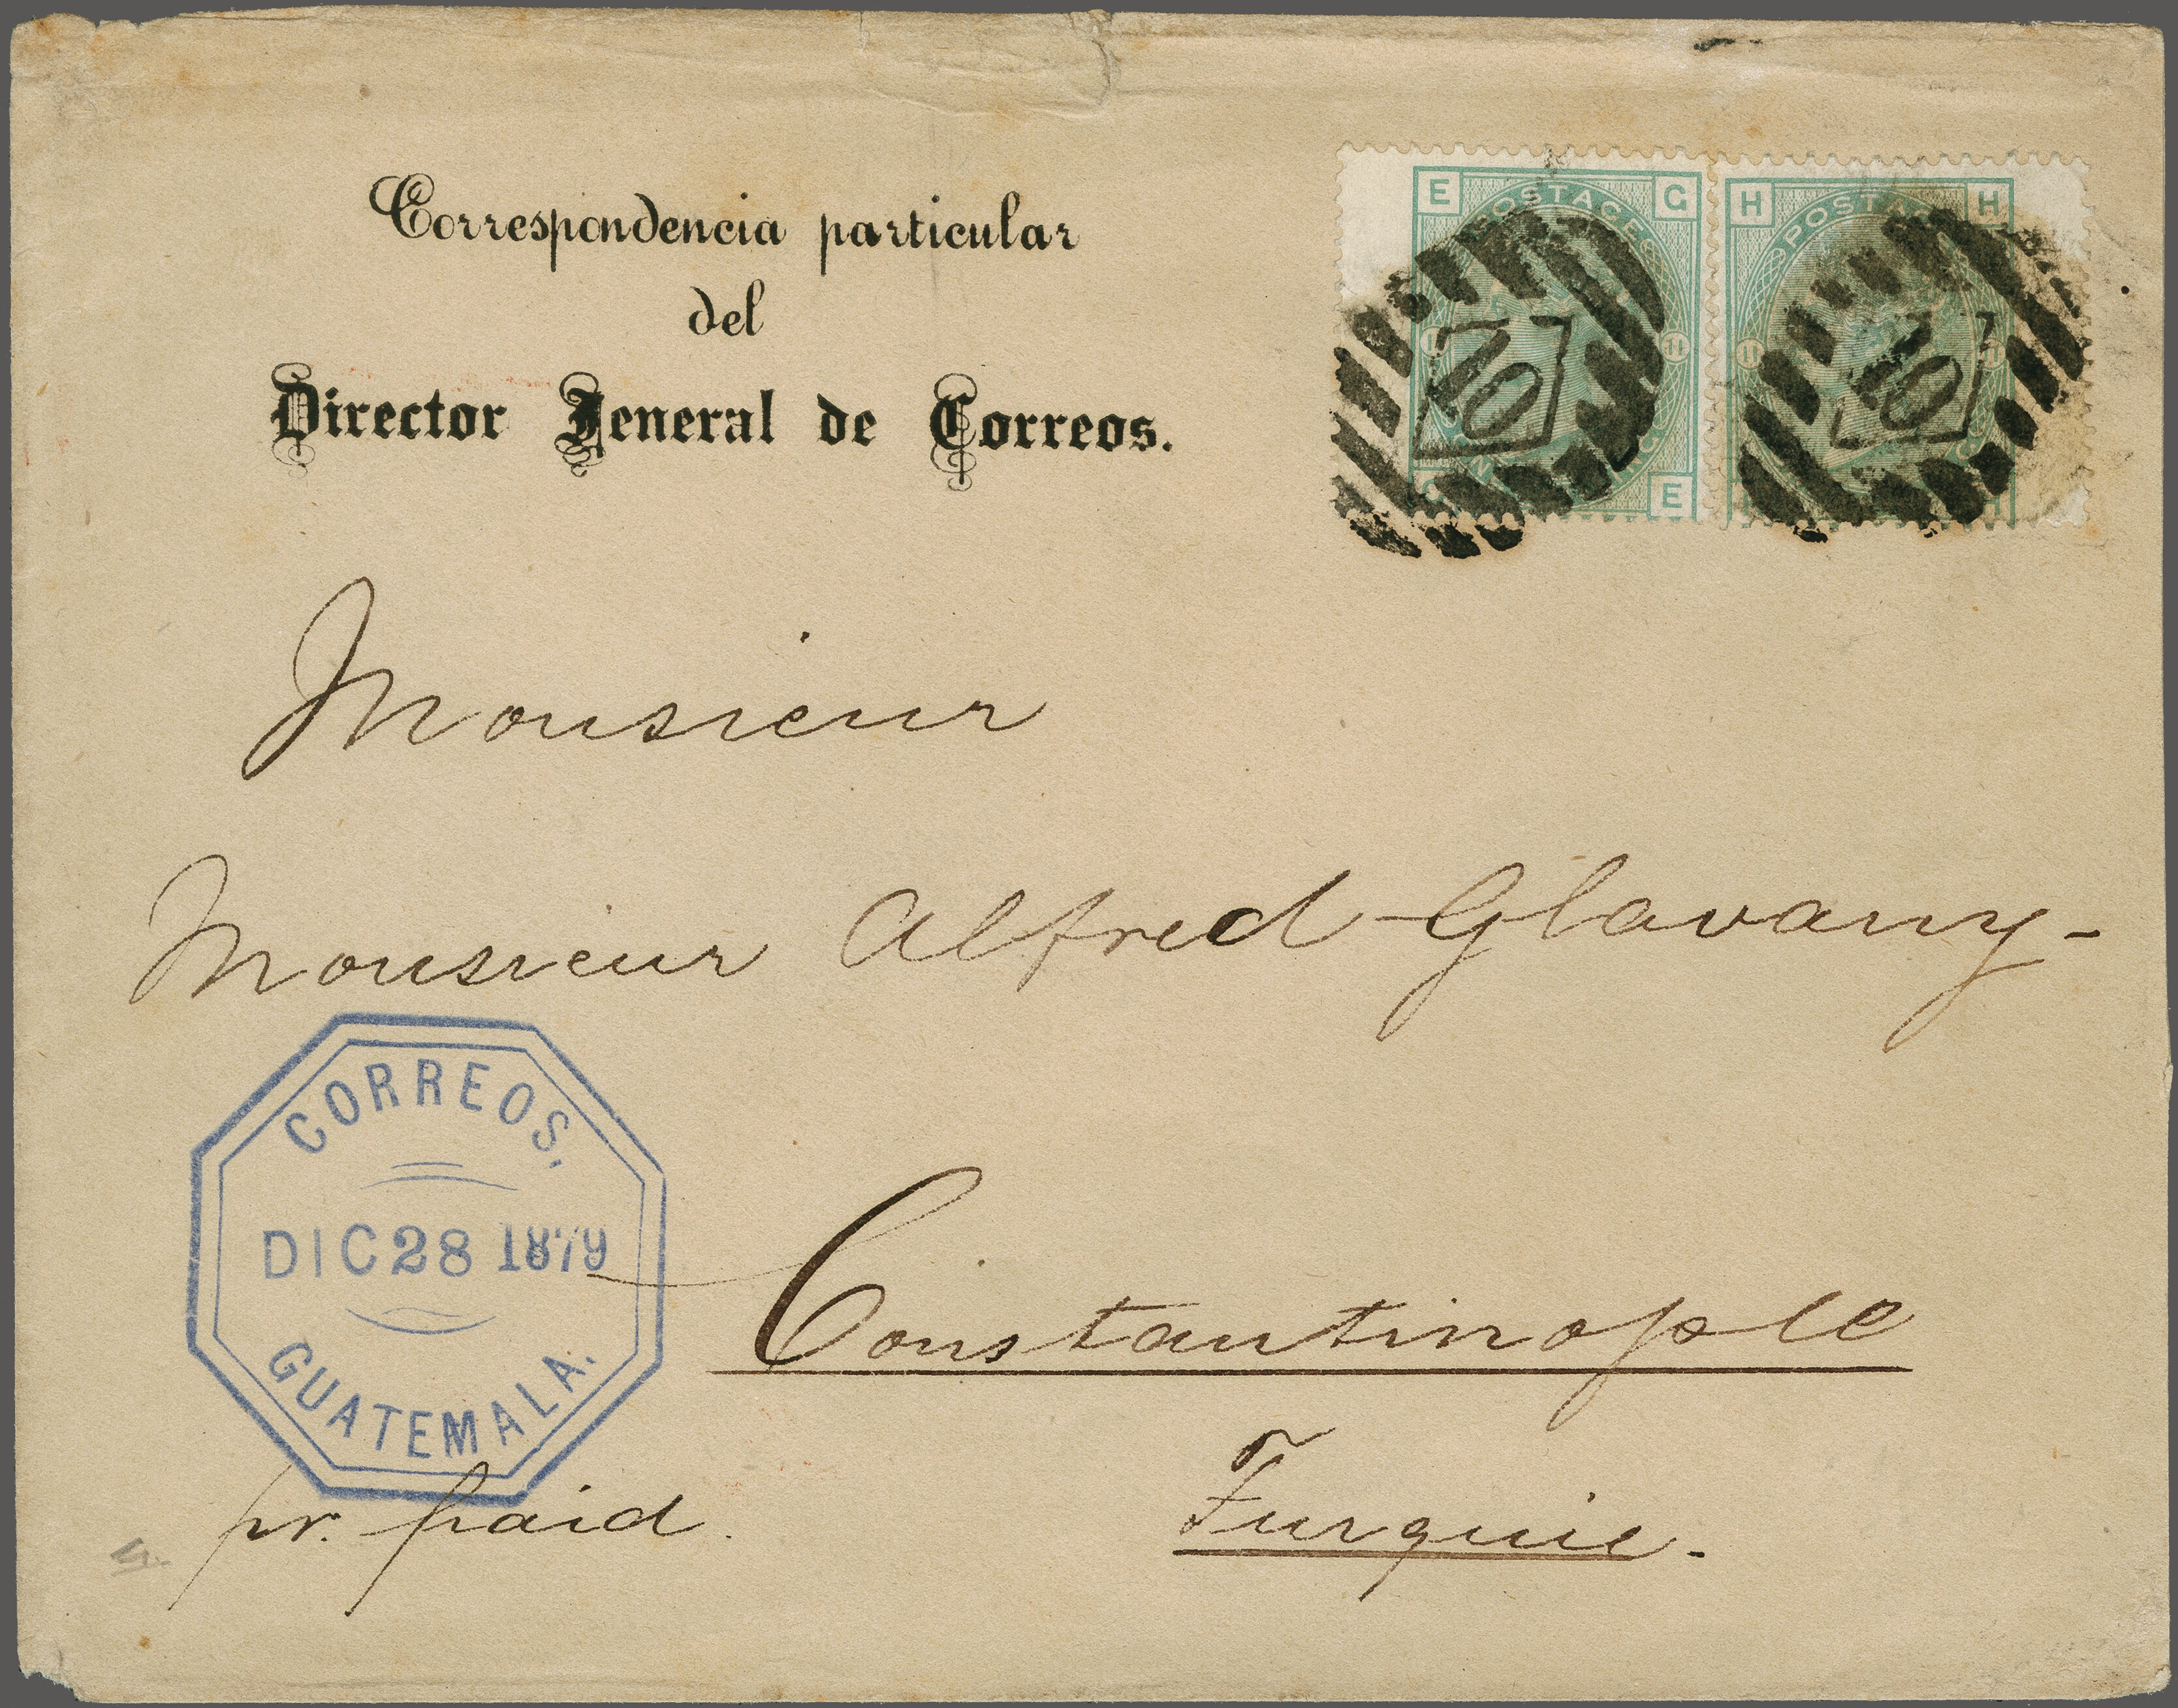 Correspondencia particular
del
Director Jeneral de Correos.
E POSTAGE G
E
H POSTAGE H
10
10
Monsieur
Monsieur Alfred Glavany-
CORREOS.
DIC 28 1879
GUATEMALA.
Constantinople
Turquie.
pr. paid.